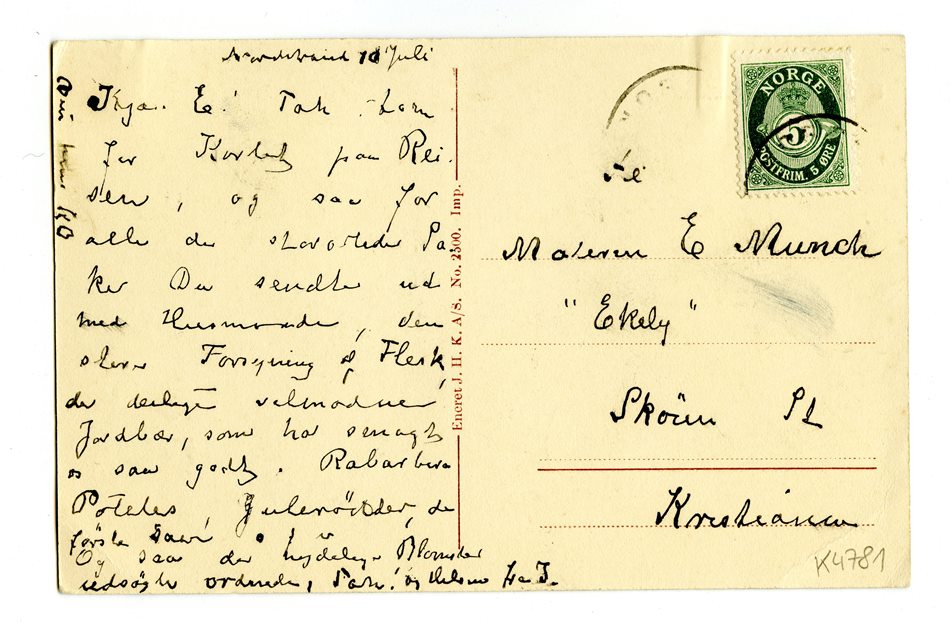 Nordstrand 10 Juli
Kjære E! Tak
for Kortet paa Rei-
sen, og saa for
alle de storartede Pa-
ker Du sendte ud
med Husmanden, den
store Forsyning af Flesk,
de deilige velmodne
Jordbær, som har smagt
os saa godt. Rabarbera
Potetes, Gulerødder, de
første
Og saa de nydelige Blomster
udsøgte ordnede, Tak! og Hilsen fra I.
Eneret J. H. K. A/S. No. 2500. Imp.
NORGE
5
POSTFRIM. 5 ØRE
Maleren E Munch
"Ekely"
Skøien St
Kristiania
K4781